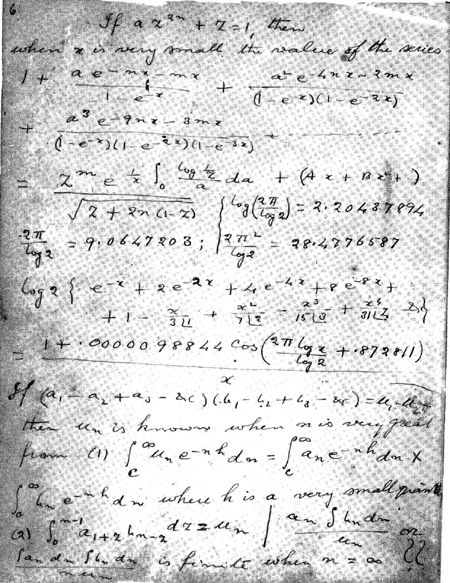 6
If a z^{2n} + z = 1, then
when x is very small the value of the series
1 + \frac{a e^{-nx-mx}}{1-e^{-x}} + \frac{a^2 e^{-4nx-2mx}}{(1-e^{-x})(1-e^{-2x})}
+ \frac{a^3 e^{-9nx-3mx}}{(1-e^{-x})(1-e^{-2x})(1-e^{-3x})} + ........
= \frac{z^m e^{\frac{1}{x}\int_0 \frac{\log \frac{1}{z}}{a} da + (Ax + Bx^2 + )}}{\sqrt{z+2n(1-z)}} log(\frac{2π}{log 2}) = 2.20437894
\frac{2π}{log 2} = 9.0647203; \frac{2π^2}{log 2} = 28.4776587
log 2 { e^{-x} + 2e^{-2x} + 4e^{-4x} + 8e^{-8x} +
+ 1 - \frac{x}{3⌊1} + \frac{x^2}{7⌊2} - \frac{x^3}{15⌊3} + \frac{x^4}{31⌊4} &}
= \frac{1 + .0000098844 cos(\frac{2π log x}{log 2} + .872811)}{x}
If (a_1 - a_2 + a_3 - &c)(b_1 - b_2 + b_3 - &c) = u_1 - u_2 +
then u_n is known when n is very great
from (1) \int_c^∞ u_n e^{-nh} dn = \int_c^∞ a_n e^{-nh} dn ×
\int_0^∞ b_n e^{-nh} dn where h is a very small
(2) \int_0^{n-1} a_{1+z} b_{n-z} dz = u_n | \frac{a_n \int b_n dn}{u_n} or
\frac{\int a_n dn \int b_n dn}{n u_n} is finite when n = ∞